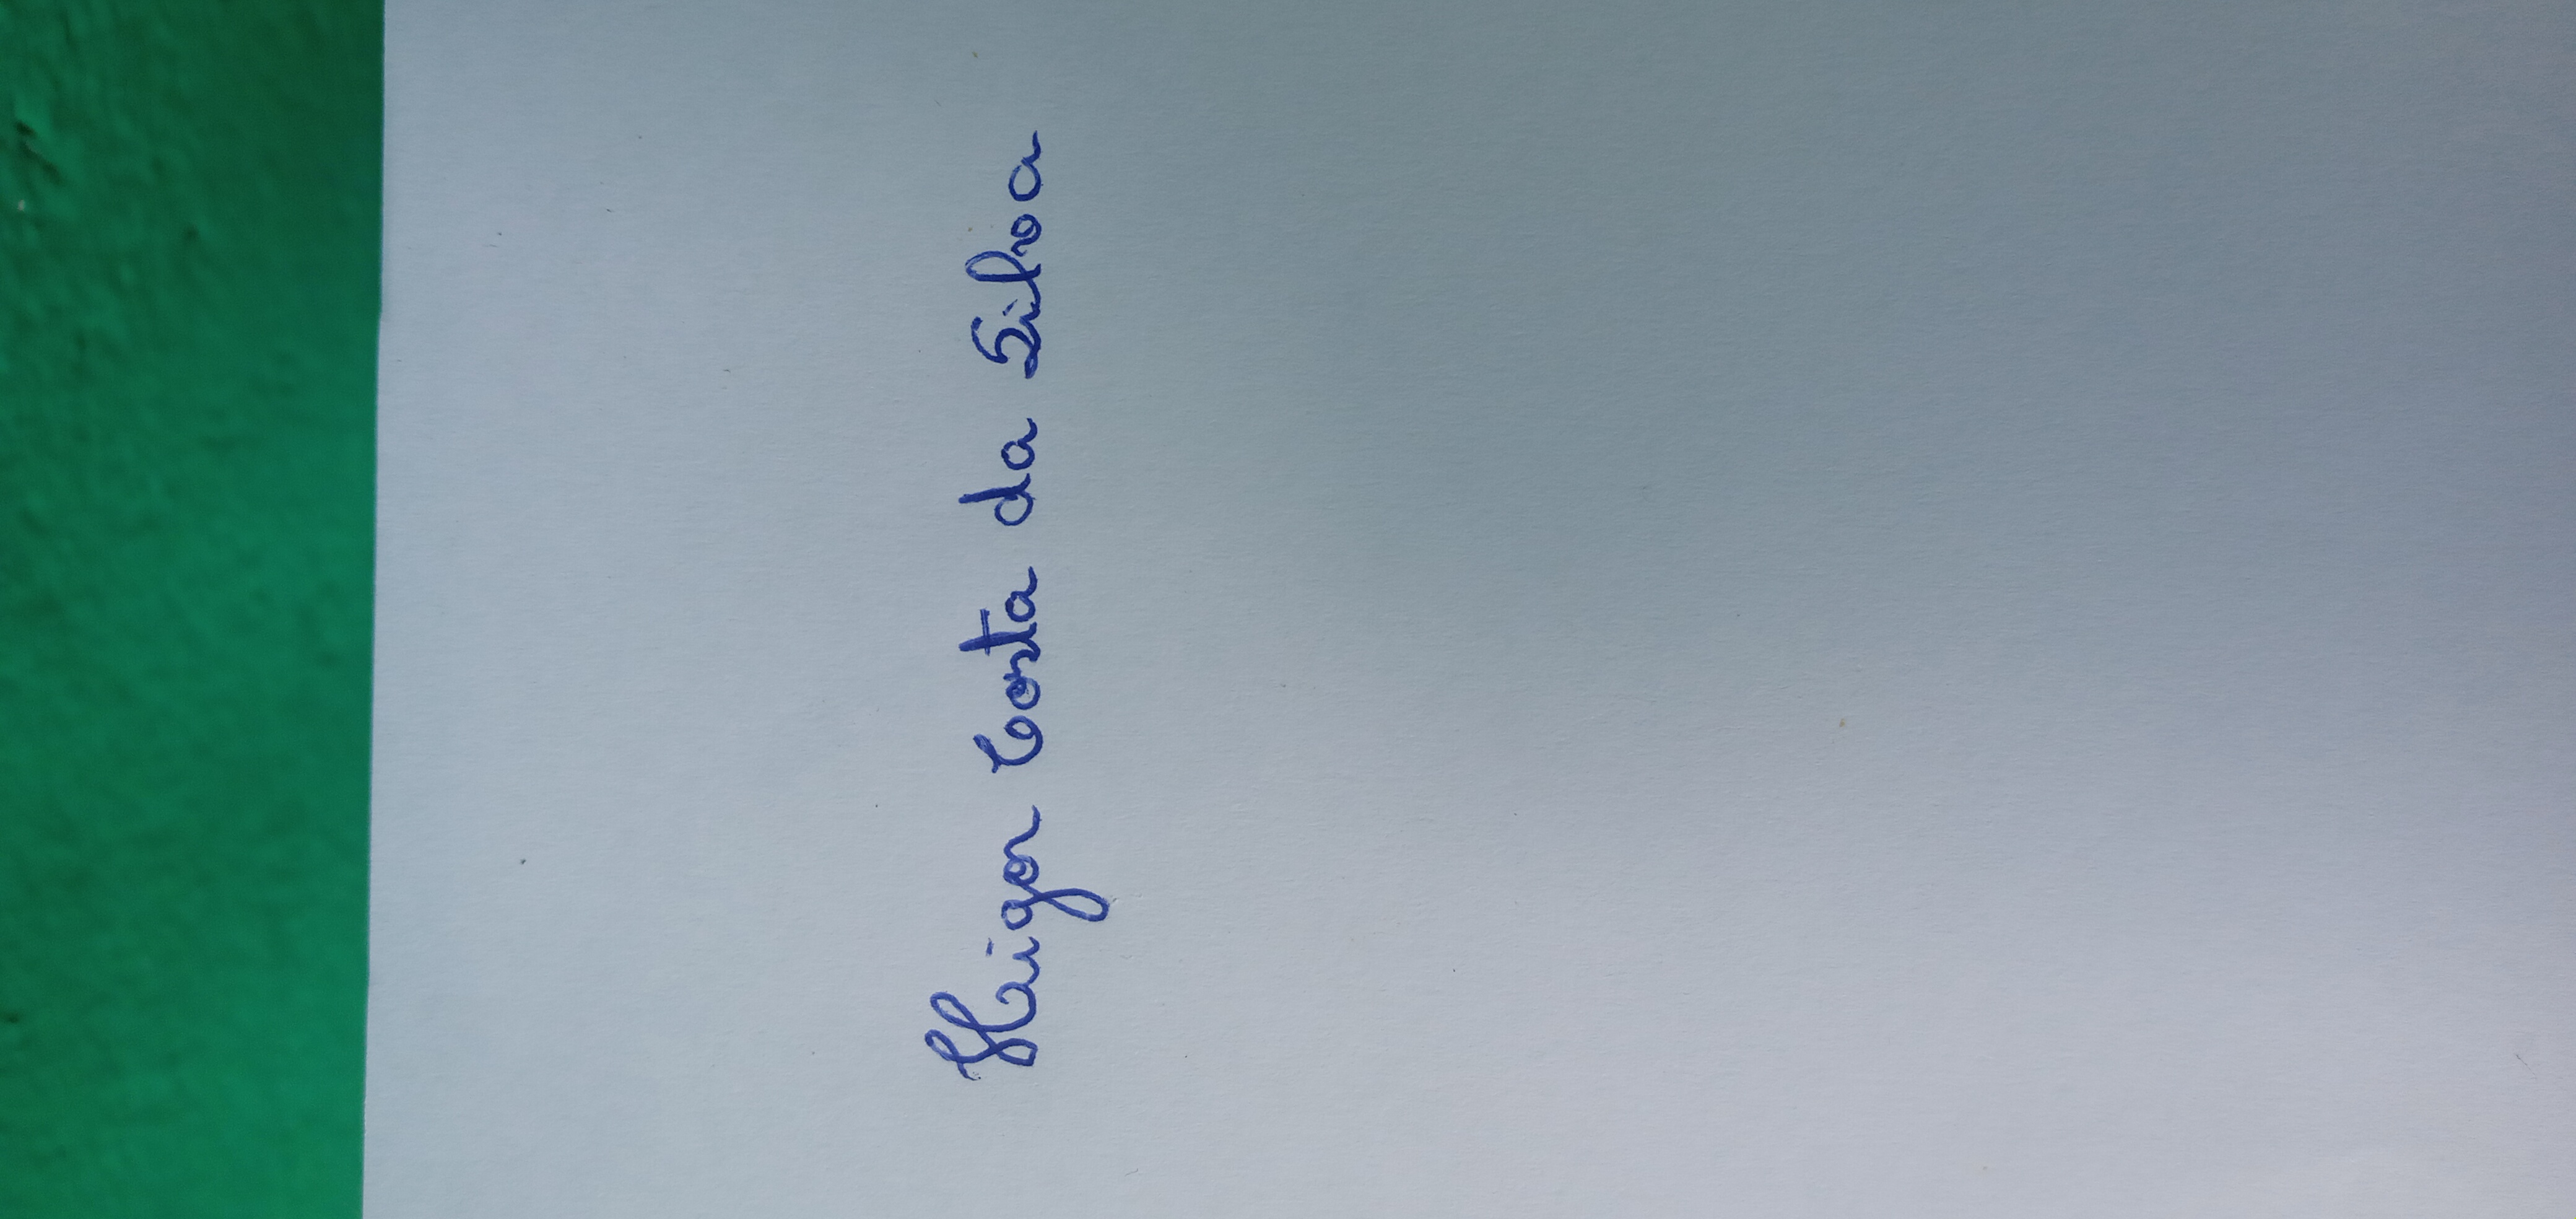 Higor Costa da Silva